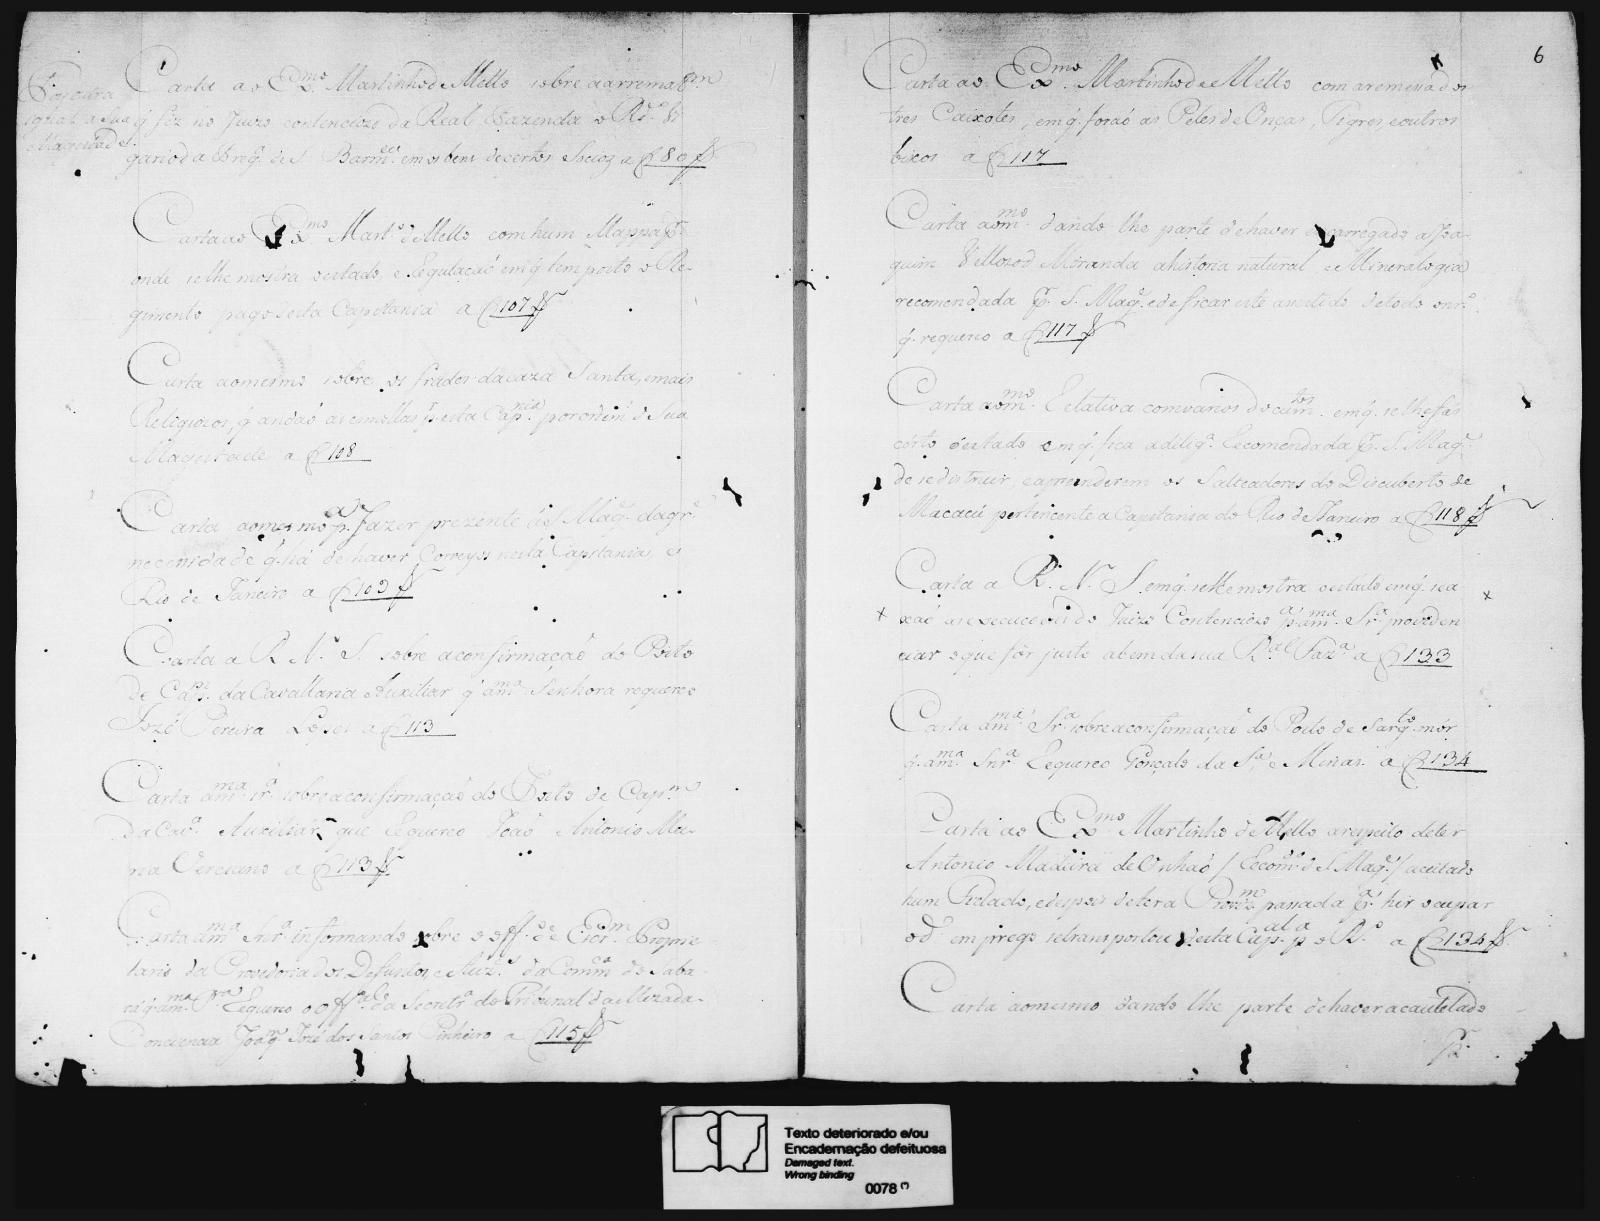 Foi outra
igual a Sua
Magestade.
Carta ao Exmo. Martinho de Mello sobre a arremaçm
q̃ fez no Juizo contencioso da Real Fazenda o Rdo. Vi
gario da Freg.ª de S. Barm.eu em os bens de certos Socios a f 80
Carta ao Exmo. Mart.º de Mello com hum Mappa p.
onde se lhe mostra o estado, e Regulação em q̃ tem posto o Re-
gimento pago desta Capitania a f 107
Carta ao mesmo sobre os frades da caza Santa, e mais
Religiosos, q̃ andaõ as esmollas p. esta Cap.nia por ordem de Sua
Magestade a f 108
Carta ao mesmo p.ª fazer prezente a S. Mag.e da gr.e
necessidade q̃ há de haver Correyos nesta Capitania e
Rio de Janeiro a f 109
Carta a R. N. S. sobre a confirmaçaõ do Posto
de Cap.m da Cavallaria Auxiliar q̃ a m.ma Senhora requereo
Jozé Pereira Lopes a f 113
Carta a m.ma Sr.ª sobre a confirmaçaõ do Posto de Cap.m
da Cav.ª Auxiliar que Requereo Joaõ Antonio Mei-
ra Verciano a f 113
Carta a m.ma Snr.ª informando sobre o off.º de Escr.m Proprie
tario da Provedoria dos Defuntos, e Auz.es da Com.ca do Saba
rá q̃ a m.ma Sr.ª Requereo o Off.al da Secret.ª do Tribunal da Meza da
Conciencia Joaq.m Jozé dos Santos Pinheiro a f 115
6
Carta ao Exmo. Martinho de Mello com a remessa dos
tres Caixotes, em q̃ foraõ as Peles de Onças, Tigres, e outros
bixos a f 117
Carta ao m.mo dando-lhe parte de haver encarregado a Joa-
quim Vellozo de Miranda a historia natural, e Mineralogia
recomendada p. S. Mag.e e de ficar este assistido de todo o nr.º
q̃ requereo a f 117
Carta ao m.mo Relativa com varios docum.tos em q̃ se lhe fas
certo o estado em q̃ fica a delig.ª Recomendada p. S. Mag.e
de se destruir, e aprenderem os Salteadores do Discuberto de
Macacú pertencente a Capitania do Rio de Janeiro a f 118
Carta a R. N. S. em q̃ se lhe mostra o estado em q̃ se a
xaõ as execuçoens do Juizo Contencioso p.ª a m.ma Sr.ª providen
ciar o que for justo a bem da sua R.al Faz.ª a f 133
Carta a m.ma Sr.ª sobre a confirmaçaõ do Posto de Sarg.to mór
q̃ a m.ma Snr.ª Requereo Gonçalo da S.ª e Minas a f 134
Carta ao Exmo. Martinho de Mello a respeito de ter
Antonio Madeira de Cunhaõ / Econ.mo de S. Mag.e / aceitado
hum Prelado, e depois de ter a Proviz.m passada p.ª hir ocupar
o d.º emprego se transportou desta Cap.al p.ª o R.º a f 134
Carta ao mesmo dando-lhe parte de haver acautelado
Texto deteriorado e/ou
Encadernação defeituosa
Damaged text.
Wrong binding
0078 (*)